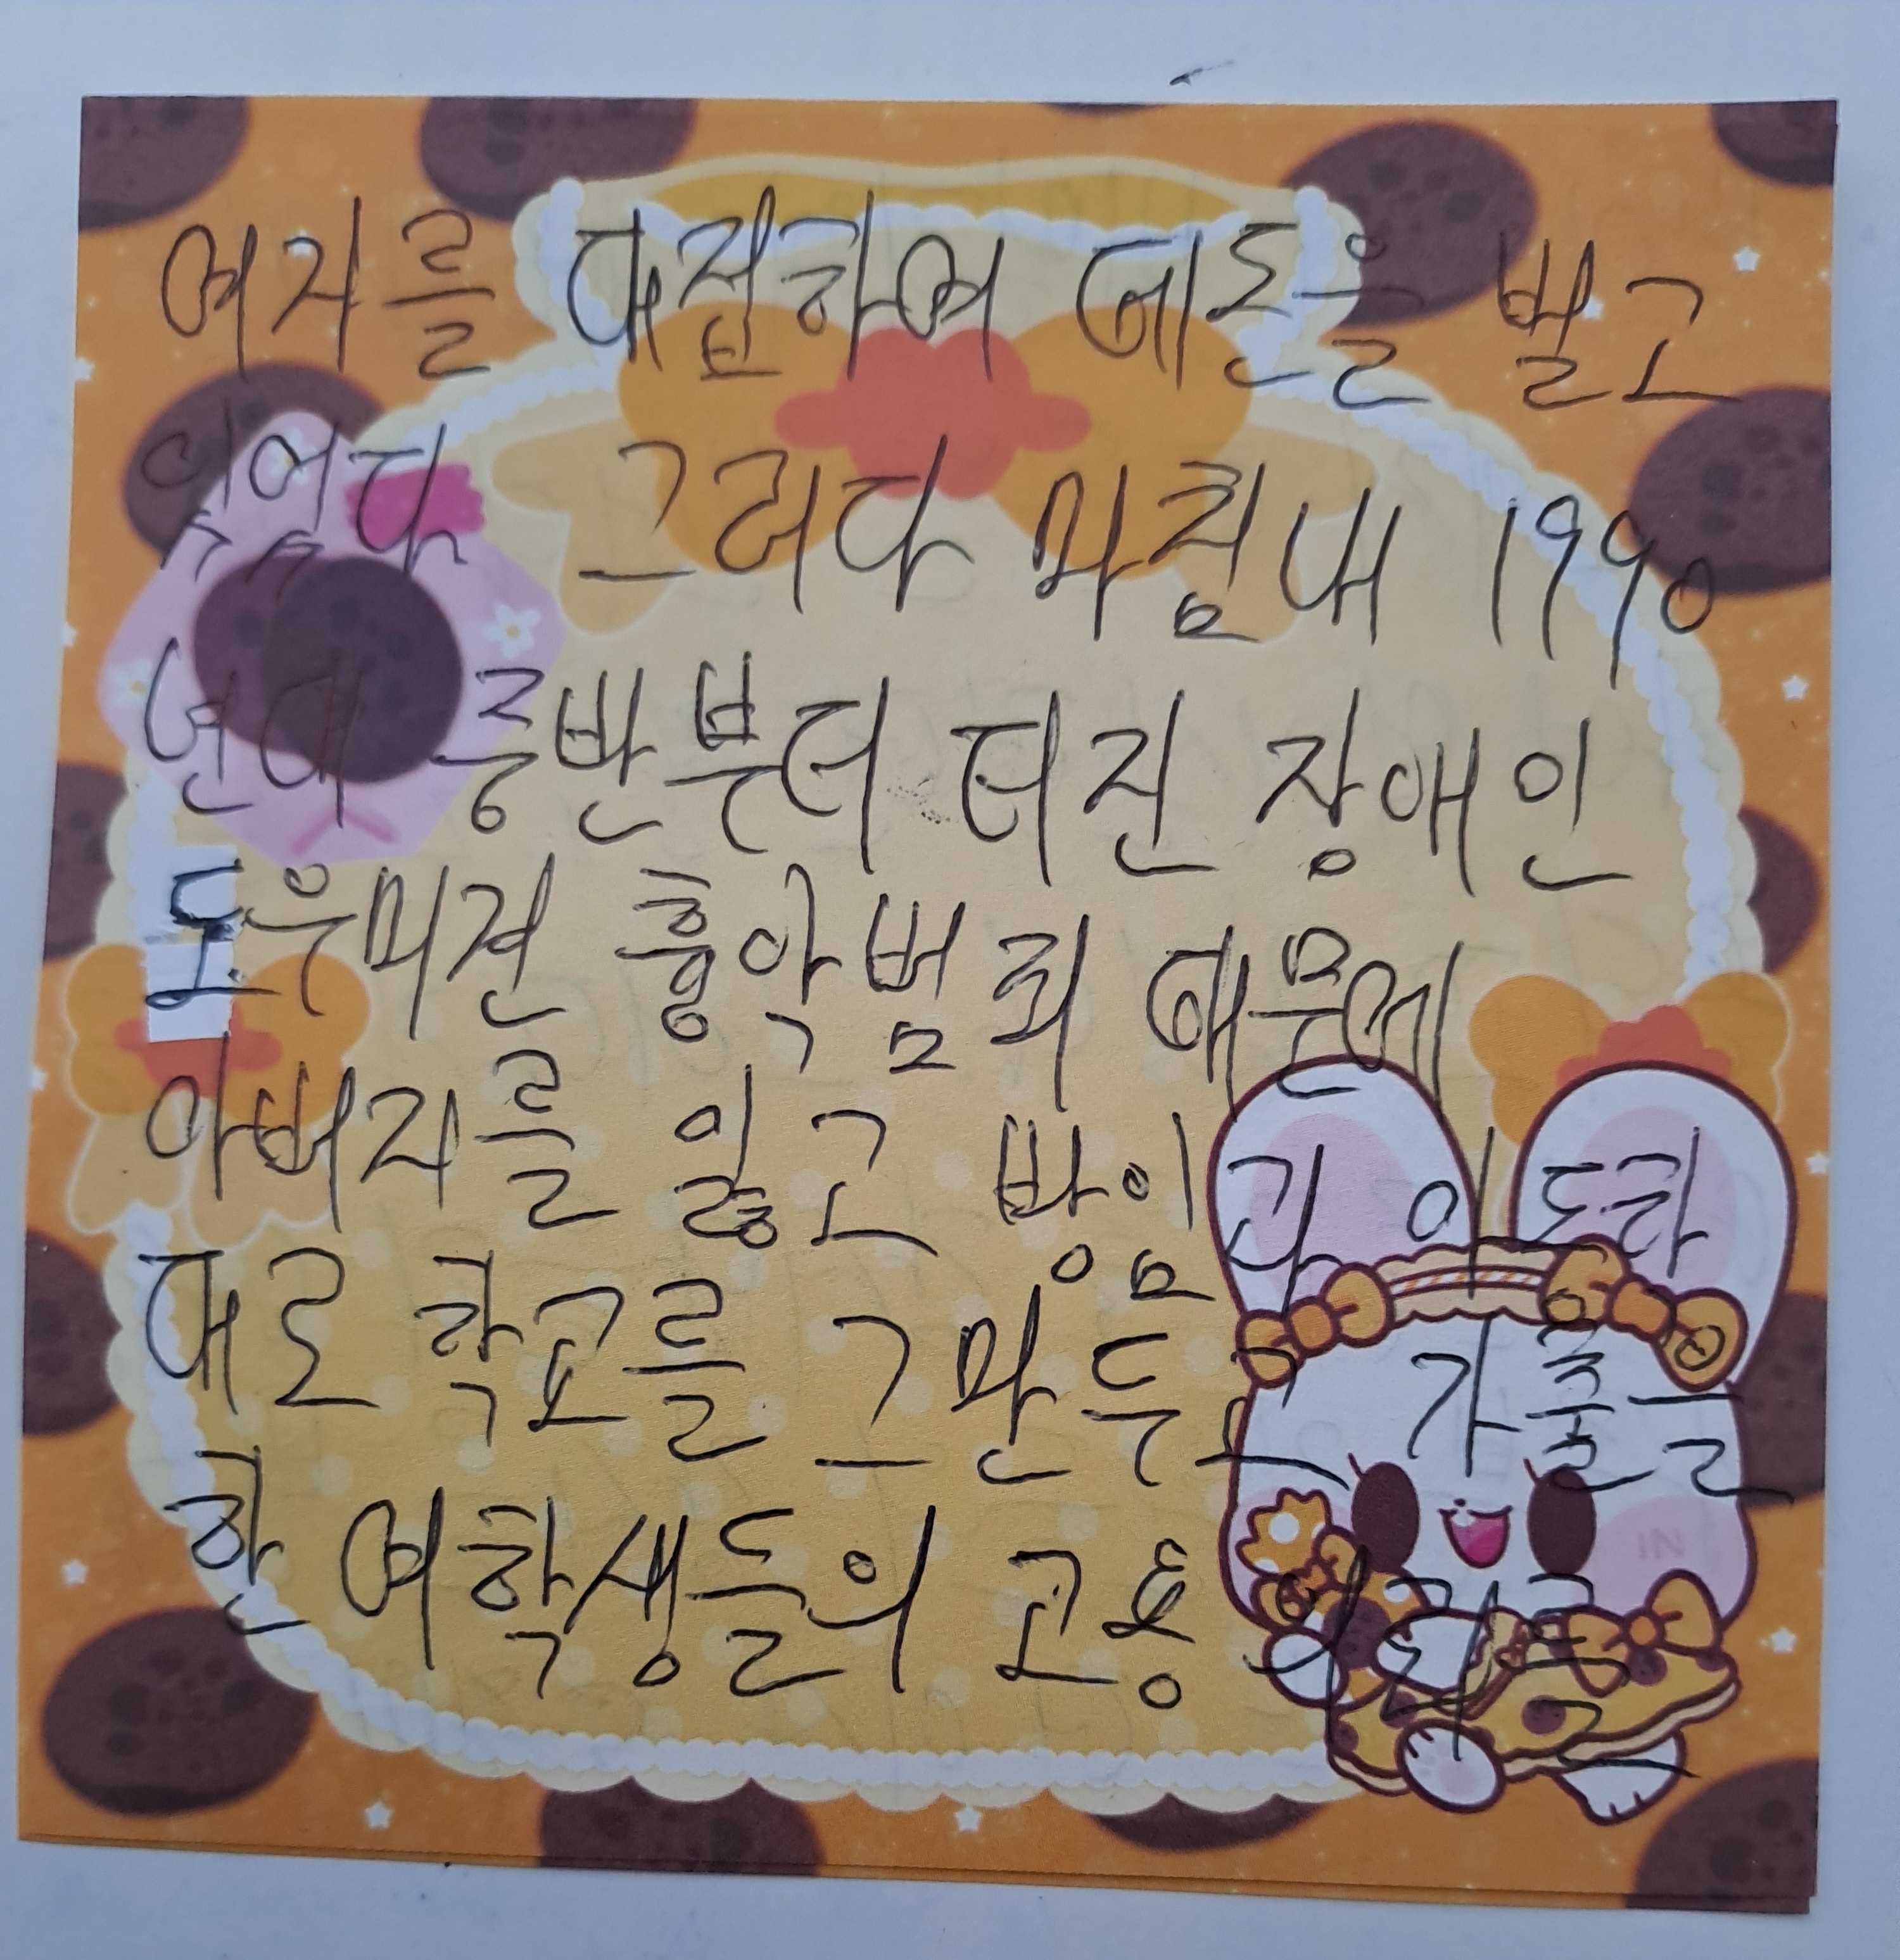 여자를 대접하여 떼돈을 벌고
있었다 그러다 마침내 1990
년대 중반부터 터진 장애인
도우미견 흉악범죄 때문에
아버지를 잃고 방임과 이도란
대로 학교를 그만두고 가출을
한 여학생들의 고용
IN